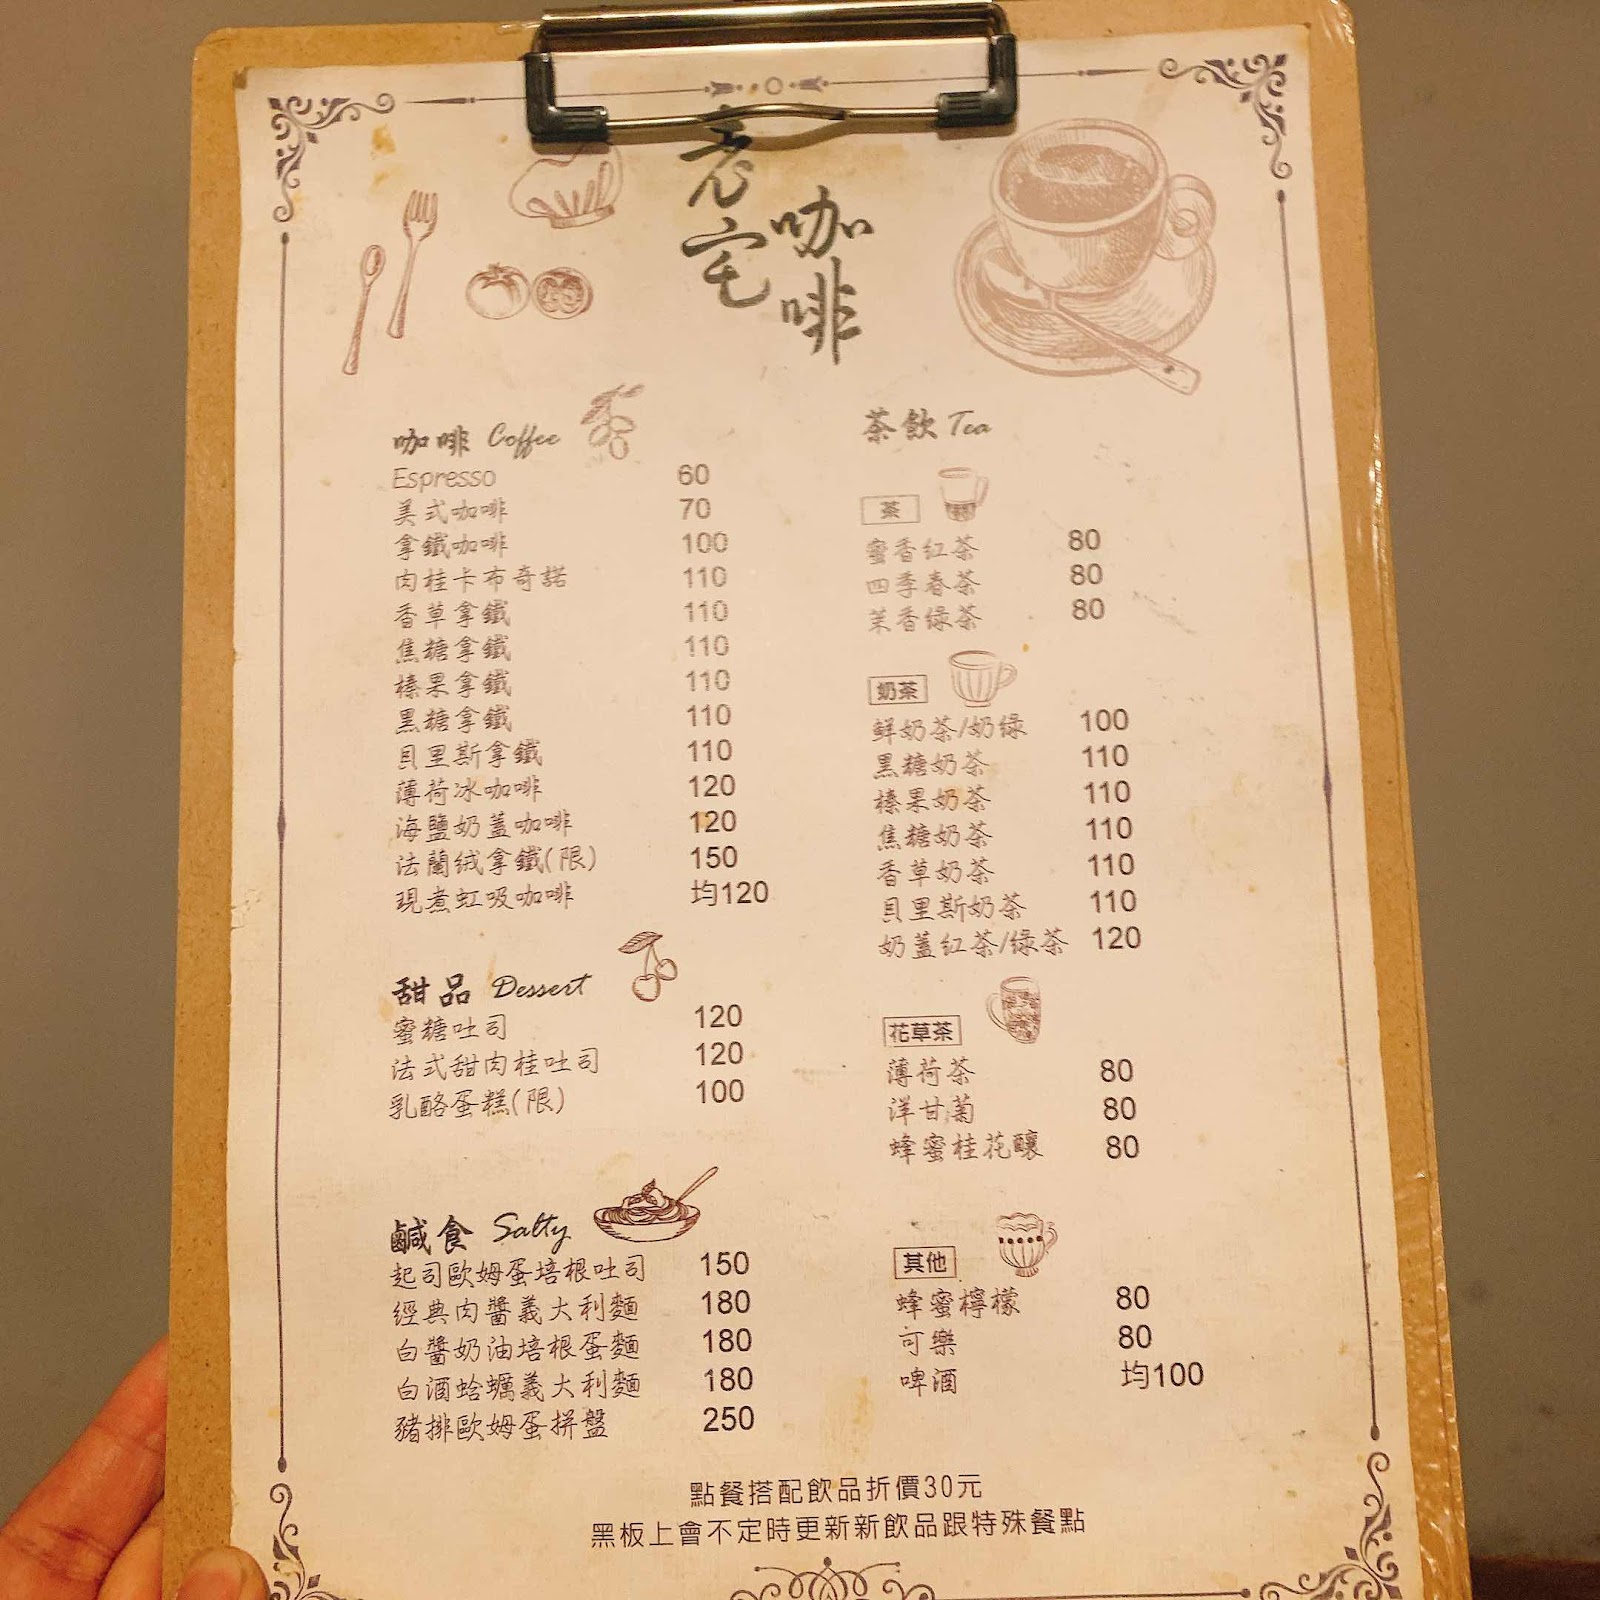 老宅
咖啡
咖啡 Coffee
Espresso 60
美式咖啡 70
拿鐵咖啡 100
肉桂卡布奇諾 110
香草拿鐵 110
焦糖拿鐵 110
榛果拿鐵 110
黑糖拿鐵 110
貝里斯拿鐵 110
薄荷冰咖啡 120
海鹽奶蓋咖啡 120
法蘭絨拿鐵(限) 150
現煮虹吸咖啡 均120
甜品 Dessert
蜜糖吐司 120
法式甜肉桂吐司 120
乳酪蛋糕(限) 100
鹹食 Salty
起司歐姆蛋培根吐司 150
經典肉醬義大利麵 180
白醬奶油培根蛋麵 180
白酒蛤蠣義大利麵 180
豬排歐姆蛋拼盤 250
茶飲 Tea
茶
蜜香紅茶 80
四季春茶 80
茉香綠茶 80
奶茶
鮮奶茶/奶綠 100
黑糖奶茶 110
榛果奶茶 110
焦糖奶茶 110
香草奶茶 110
貝里斯奶茶 110
奶蓋紅茶/綠茶 120
花草茶
薄荷茶 80
洋甘菊 80
蜂蜜桂花釀 80
其他
蜂蜜檸檬 80
可樂 80
啤酒 均100
點餐搭配飲品折價30元
黑板上會不定時更新新飲品跟特殊餐點